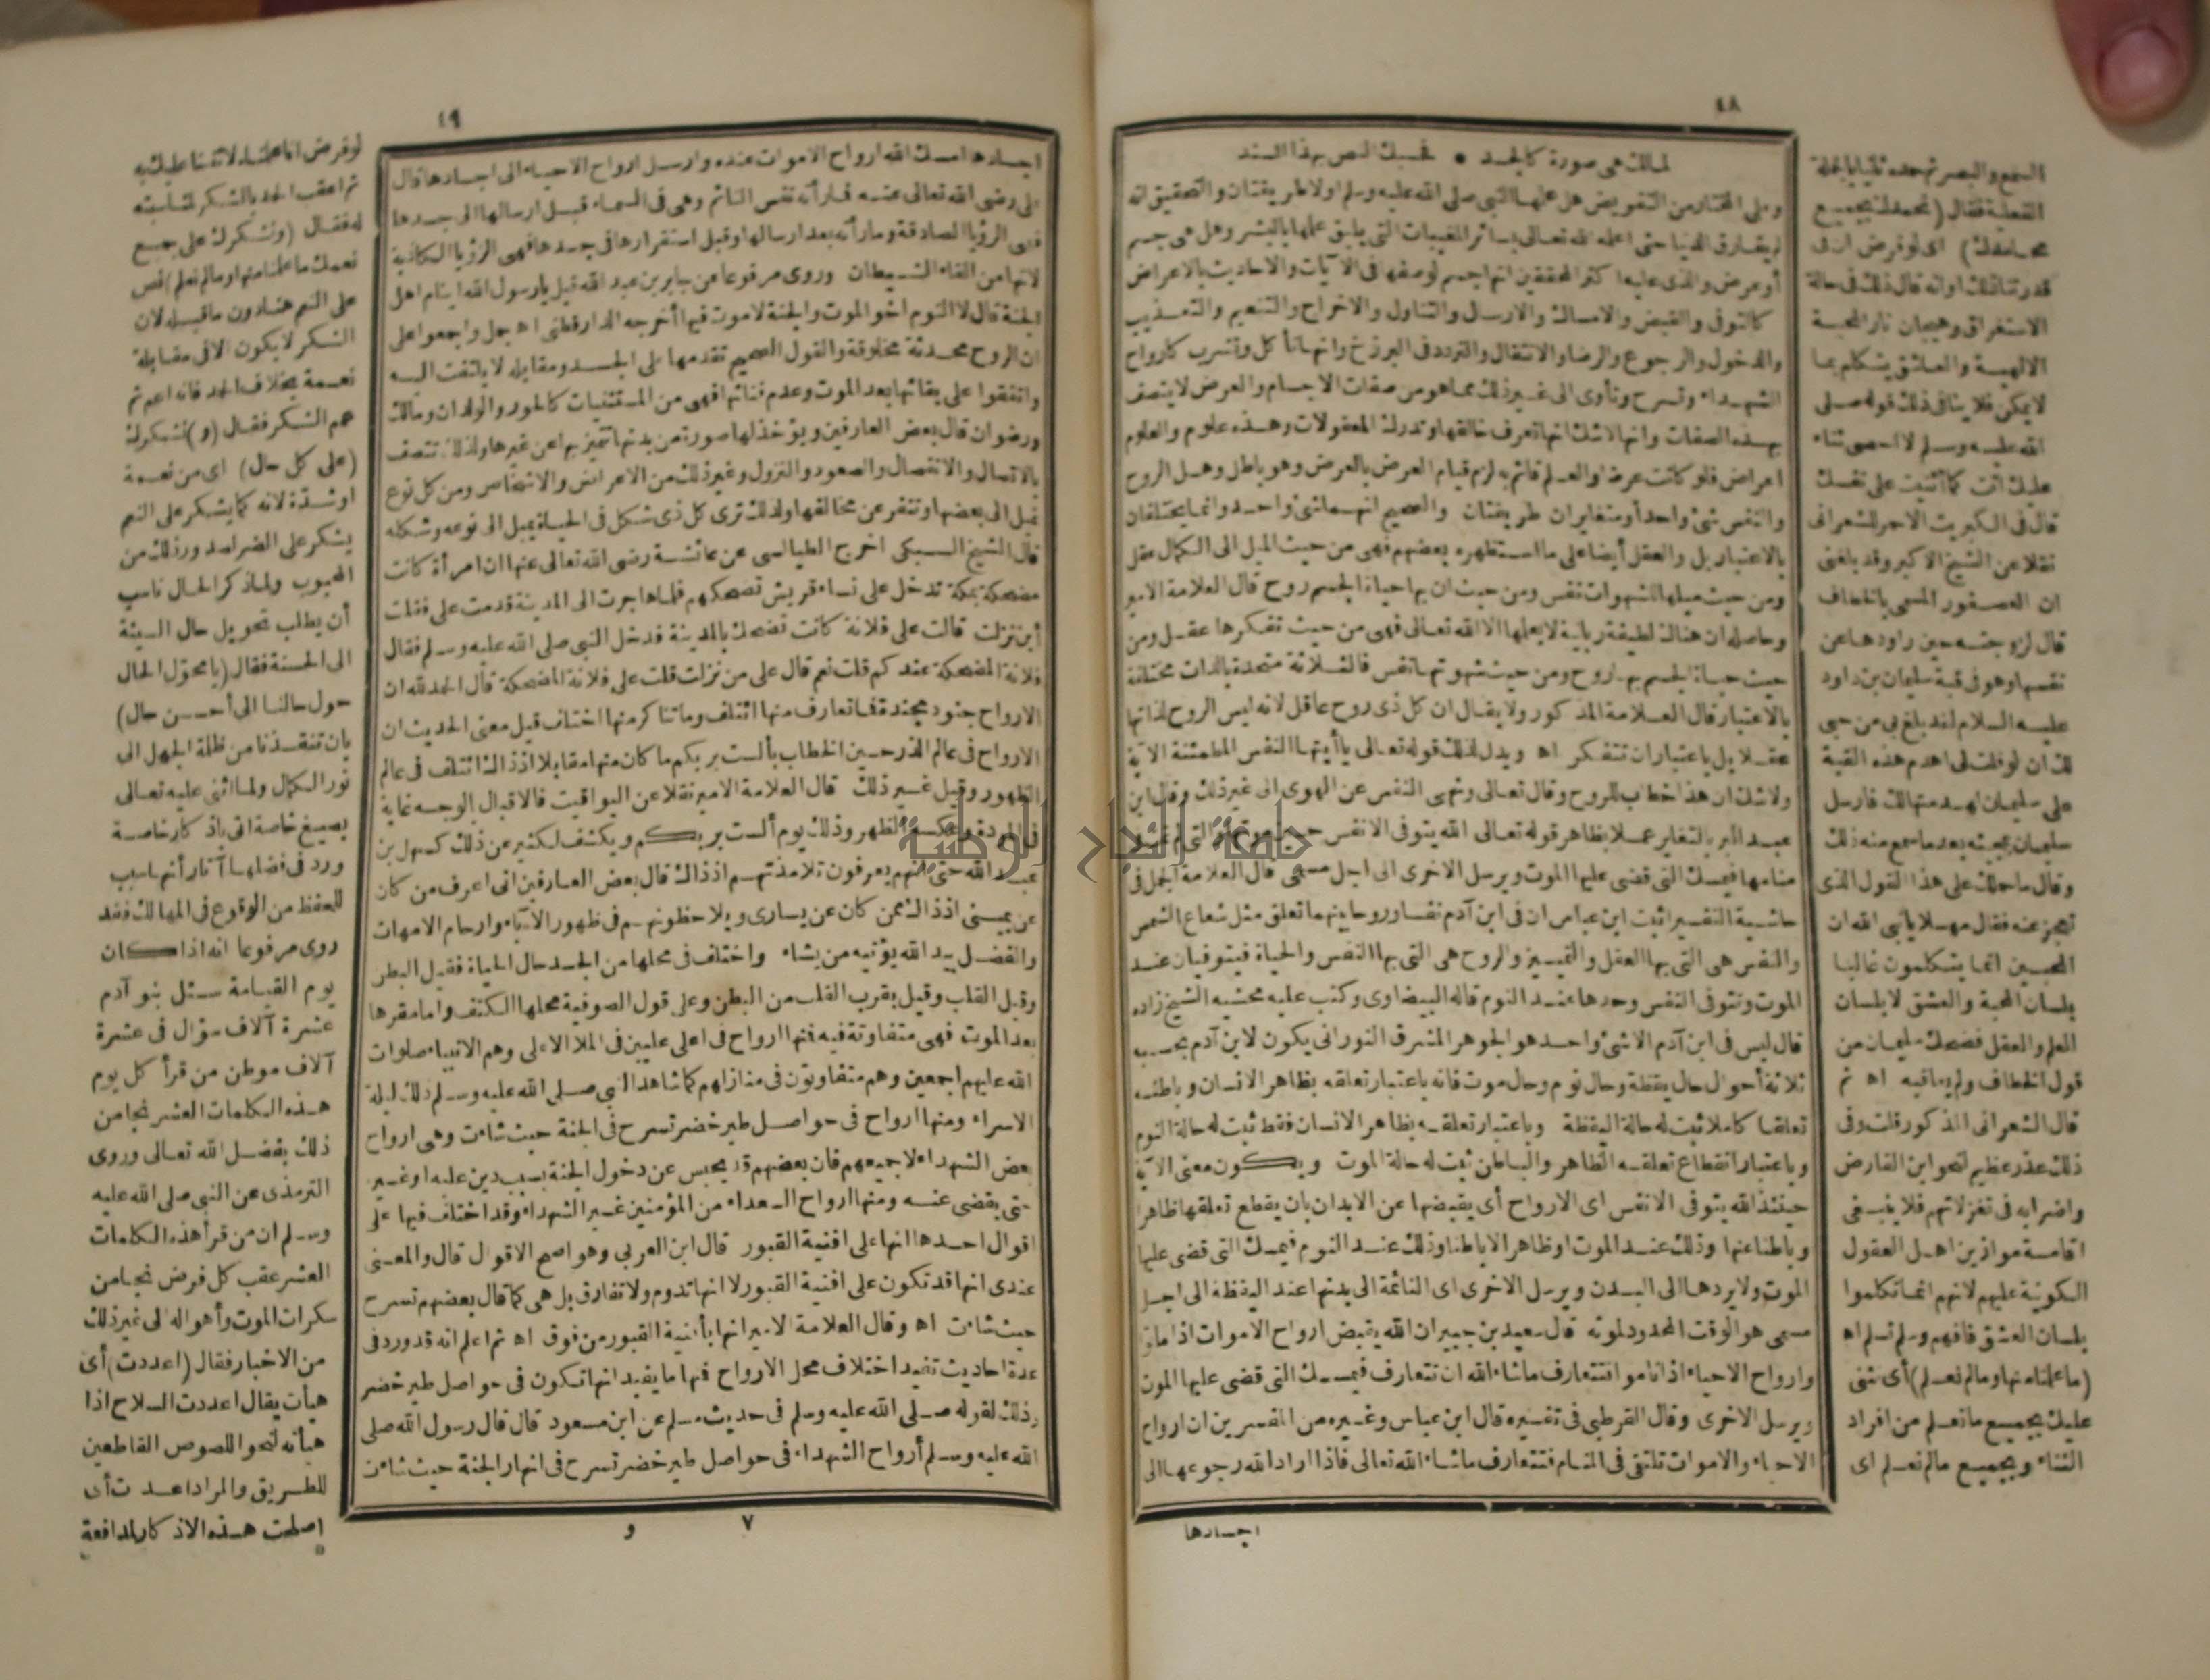 ٤٨
لمالك هى صورة كالجسد • فحسبك النص بهذا السند
وعلى المختار من التفويض هل علمها النبى صلى الله عليه وسلم اولا طريقتان والتحقيق انه
لم يفارق الدنيا حتى اعلمه الله تعالى بسائر المغيبات التى يليق علمها بالبشر وهل هى جسم
أو عرض والذى عليه اكثر المحققين انها جسم لوصفها فى الآيات والاحاديث بالاعراض
كالتوفى والقبض والامساك والارسال والتناول والاخراج والتنعيم والتعذيب
والدخول والرجوع والرضا والانتقال والتردد فى البرزخ وانها تأكل وتشرب كارواح
الشهداء وتسرح وتأوى الى غير ذلك مما هو من صفات الاجسام والعرض لا يتصف
بهذه الصفات وانها لاشك انها تعرف خالقها وتدرك المعقولات وهذه علوم والعلوم
اعراض فلو كانت عرضا والعلم قائم به لزم قيام العرض بالعرض وهو باطل وهل الروح
والنفس شئ واحد أو متغايران طريقتان والصحيح انهما شئ واحد وانما يختلفان
بالاعتبار بل والعقل أيضا على ما استظهره بعضهم فهى من حيث الميل الى الكمال عقل
ومن حيث ميلها للشهوات نفس ومن حيث ان بها حياة الجسم روح قال العلامة الامير
وحاصله ان هناك لطيفة ربانية لا يعلمها الا الله تعالى فهى من حيث تفكرها عقل ومن
حيث حياة الجسم بها روح ومن حيث شهوتها نفس فالثلاثة متحدة بالذات مختلفة
بالاعتبار قال العلامة المذكور ولا يقال ان كل ذى روح عاقل لانه ليس الروح لذاتها
عقلا بل باعتبار ان تتفكر اه ويدل لذلك قوله تعالى يا أيتها النفس المطمئنة الآية
ولاشك ان هذا خطاب للروح وقال تعالى ونهى النفس عن الهوى الى غير ذلك وقال ابن
عبد البر بالتغاير عملا بظاهر قوله تعالى الله يتوفى الانفس حين موتها والتى لم تمت فى
منامها فيمسك التى قضى عليها الموت ويرسل الاخرى الى اجل مسمى قال العلامة الجمل فى
حاشية التفسير اثبت ابن عباس ان فى ابن آدم نفسا وروحا بينهما تعلق مثل شعاع الشمس
والنفس هى التى بها العقل والتمييز والروح هى التى بها النفس والحياة فيتوفيان عند
الموت وتتوفى النفس وحدها عند النوم قاله البيضاوى وكتب عليه محشيه الشيخ زاده
قال ليس فى ابن آدم الا شئ واحد هو الجوهر المشرق النورانى يكون لابن آدم بحسبه
ثلاثة أحوال حال يقظة وحال نوم وحال موت فانه باعتبار تعلقه بظاهر الانسان وباطنه
تعلقا كاملا ثبت له حالة اليقظة وباعتبار تعلقه بظاهر الانسان فقط ثبت له حالة النوم
وباعتبار انقطاع تعلقه الظاهر والباطن ثبت له حالة الموت ويكون معنى الآية
حينئذ الله يتوفى الانفس اى الارواح أى يقبضها عن الابدان بان يقطع تعلقها ظاهرا
وباطنا عنها وذلك عند الموت او ظاهرا لا باطنا وذلك عند النوم فيمسك التى قضى عليها
الموت ولا يردها الى البدن ويرسل الاخرى اى النائمة الى بدنها عند اليقظة الى اجل
مسمى هو الوقت المحدود لموته قال سعيد بن جبير ان الله يقبض ارواح الاموات اذا ماتوا
وارواح الاحياء اذا ناموا فتتعارف ما شاء الله ان تتعارف فيمسك التى قضى عليها الموت
ويرسل الاخرى وقال القرطبى فى تفسيره قال ابن عباس وغيره من المفسرين ان ارواح
الاحياء والاموات تلتقى فى المنام فتتعارف ما شاء الله تعالى فاذا اراد الله رجوعها الى
اجسادها
السمع والبصر ثم حمده ثانيا بالجملة
الفعلية فقال (نحمدك بجميع
محامدك) اى لو فرض ان فى
قدرتنا ذلك او انه قال ذلك فى حالة
الاستغراق وهيجان نار المحبة
الالهية والعاشق يتكلم بما
لا يمكن فلا ينافى ذلك قوله صلى
الله عليه وسلم لا احصى ثناء
عليك انت كما أثنيت على نفسك
قال فى الكبريت الاحمر للشعرانى
نقلا عن الشيخ الاكبر وقد بلغنى
ان العصفور المسمى بالخطاف
قال لزوجته حين راودها عن
نفسها وهو فى قبة سليمان بن داود
عليه السلام لقد بلغ بى من حبى
لك ان لو قلت لى اهدم هذه القبة
على سليمان لهدمتها لك فارسل
سليمان بجيئه بعد ما سمع منه ذلك
وقال ما حملك على هذا القول الذى
تعجز عنه فقال مهلا يا نبى الله ان
المحبين انما يتكلمون غالبا
بلسان المحبة والعشق لا بلسان
العلم والعقل فضحك سليمان من
قول الخطاف ولم يعاقبه اه ثم
قال الشعرانى المذكور قلت وفى
ذلك عذر عظيم لنحو ابن الفارض
واضرابه فى تغزلاتهم فلا ينبغى
اقامة موازين اهل العقول
الكونية عليهم لانهم انما تكلموا
بلسان العشق فافهم وسلم تسلم اه
(ما علمنا منها وما لم نعلم) أى نثنى
عليك بجميع ما نعلم من افراد
الثناء وبجميع ما لم نعلم اى
٤٩
اجسادها امسك الله ارواح الاموات عنده وارسل ارواح الاحياء الى اجسادها قال
على رضى الله تعالى عنه فما رأته نفس النائم وهى فى السماء قبل ارسالها الى جسدها
فهى الرؤيا الصادقة وما رأته بعد ارسالها وقبل استقرارها فى جسدها فهى الرؤيا الكاذبة
لانها من القاء الشيطان وروى مرفوعا عن جابر بن عبد الله قيل يا رسول الله اينام اهل
الجنة قال لا النوم اخو الموت والجنة لا موت فيها أخرجه الدارقطنى اه جمل واجمعوا على
ان الروح محدثة مخلوقة والقول الصحيح تقدمها على الجسد ومقابله لا يلتفت اليه
واتفقوا على بقائها بعد الموت وعدم فنائها فهى من المستثنيات كالحور والولدان ومالك
ورضوان قال بعض العارفين ويؤخذ لها صورة من بدنها تتميز بها عن غيرها ولذلك تتصف
بالاتصال والانفصال والصعود والنزول وغير ذلك من الاعراض والاشخاص ومن كل نوع
تميل الى بعضها وتنفر عن مخالفها ولذلك ترى كل ذى شكل فى الحياة يميل الى نوعه وشكله
قال الشيخ السبكى اخرج الطيالسى عن عائشة رضى الله تعالى عنها ان امرأة كانت
مضحكة بمكة تدخل على نساء قريش تضحكهم فلما هاجرت الى المدينة قدمت على فقلت
أين نزلت قالت على فلانة كانت تضحك بالمدينة فدخل النبى صلى الله عليه وسلم فقال
فلانة المضحكة عندكم قلت نعم قال على من نزلت قلت على فلانة المضحكة قال الحمد لله ان
الارواح جنود مجندة فما تعارف منها ائتلف وما تناكر منها اختلف قيل معنى الحديث ان
الارواح فى عالم الذر حين الخطاب بألست بربكم ما كان منها مقابلا اذ ذاك ائتلف فى عالم
الظهور وقيل غير ذلك قال العلامة الامير نقلا عن اليواقيت فالاقبال بالوجه غاية
فى المودة وعكسه الظهر وذلك يوم ألست بربكم ويكشف لكثير عن ذلك كسهل بن
عبد الله حتى انهم يعرفون تلامذتهم اذ ذاك قال بعض العارفين انى اعرف من كان
عن يمينى اذ ذاك ممن كان عن يسارى ويلاحظونهم فى ظهور الآباء وارحام الامهات
والفضل بيد الله يؤتيه من يشاء واختلف فى محلها من الجسد حال الحياة فقيل البطن
وقيل القلب وقيل بقرب القلب من البطن وعلى قول الصوفية محلها الكتف واما مقرها
بعد الموت فهى متفاوتة فيه فمنها ارواح فى اعلى عليين فى الملا الاعلى وهم الانبياء صلوات
الله عليهم اجمعين وهم متفاوتون فى منازلهم كما شاهد النبى صلى الله عليه وسلم ذلك ليلة
الاسراء ومنها ارواح فى حواصل طير خضر تسرح فى الجنة حيث شاءت وهى ارواح
بعض الشهداء لا جميعهم فان بعضهم قد يحبس عن دخول الجنة بسبب دين عليه او غيره
حتى يقضى عنه ومنها ارواح السعداء من المؤمنين غير الشهداء وقد اختلف فيها على
اقوال احدها انها على افنية القبور قال ابن العربى وهو اصح الاقوال قال والمعنى
عندى انها قد تكون على افنية القبور لا انها تدوم ولا تفارق بل هى كما قال بعضهم تسرح
حيث شاءت اه وقال العلامة الامير انها بأبنية القبور من فوق اه ثم اعلم انه قد ورد فى
عدة احاديث تفيد اختلاف محل الارواح فمنها ما يفيد انها تكون فى حواصل طير خضر
وذلك لقوله صلى الله عليه وسلم فى حديث مسلم عن ابن مسعود قال قال رسول الله صلى
الله عليه وسلم أرواح الشهداء فى حواصل طير خضر تسرح فى انهار الجنة حيث شاءت
٧ و
لو فرض انا علمناه لاثنينا عليك به
ثم اعقب الحمد بالشكر لمناسبته
له فقال (ونشكرك على جميع
نعمك ما علمنا منها وما لم نعلم) فص
على النعم هنا دون ما قبله لان
الشكر لا يكون الا فى مقابلة
نعمة بخلاف الحمد فانه اعم ثم
عمم الشكر فقال (و) نشكرك
(على كل حال) اى من نعمة
او شدة لانه كما يشكر على النعم
يشكر على الضراء لورود ذلك من
المحبوب ولما ذكر الحال ناسب
أن يطلب تحويل حال السيئة
الى الحسنة فقال (يا محول الحال
حول حالنا الى أحسن حال)
بان تنقذنا من ظلمة الجهل الى
نور الكمال ولما اثنى عليه تعالى
بصيغ خاصة اتى باذكار خاصة
ورد فى فضلها آثار أنها سبب
للحفظ من الوقوع فى المهالك فقد
روى مرفوعا انه اذا كان
يوم القيامة سئل بنو آدم
عشرة آلاف سؤال فى عشرة
آلاف موطن من قرأ كل يوم
هذه الكلمات العشر نجا من
ذلك بفضل الله تعالى وروى
الترمذى عن النبى صلى الله عليه
وسلم ان من قرأ هذه الكلمات
العشر عقب كل فرض نجا من
سكرات الموت وأهواله الى غير ذلك
من الاخبار فقال (اعددت) أى
هيأت يقال اعددت السلاح اذا
هيأته لنحو اللصوص القاطعين
للطريق والمراد اعددت أى
اصلحت هذه الاذكار لمدافعة
جامعة النجاح الوطنية